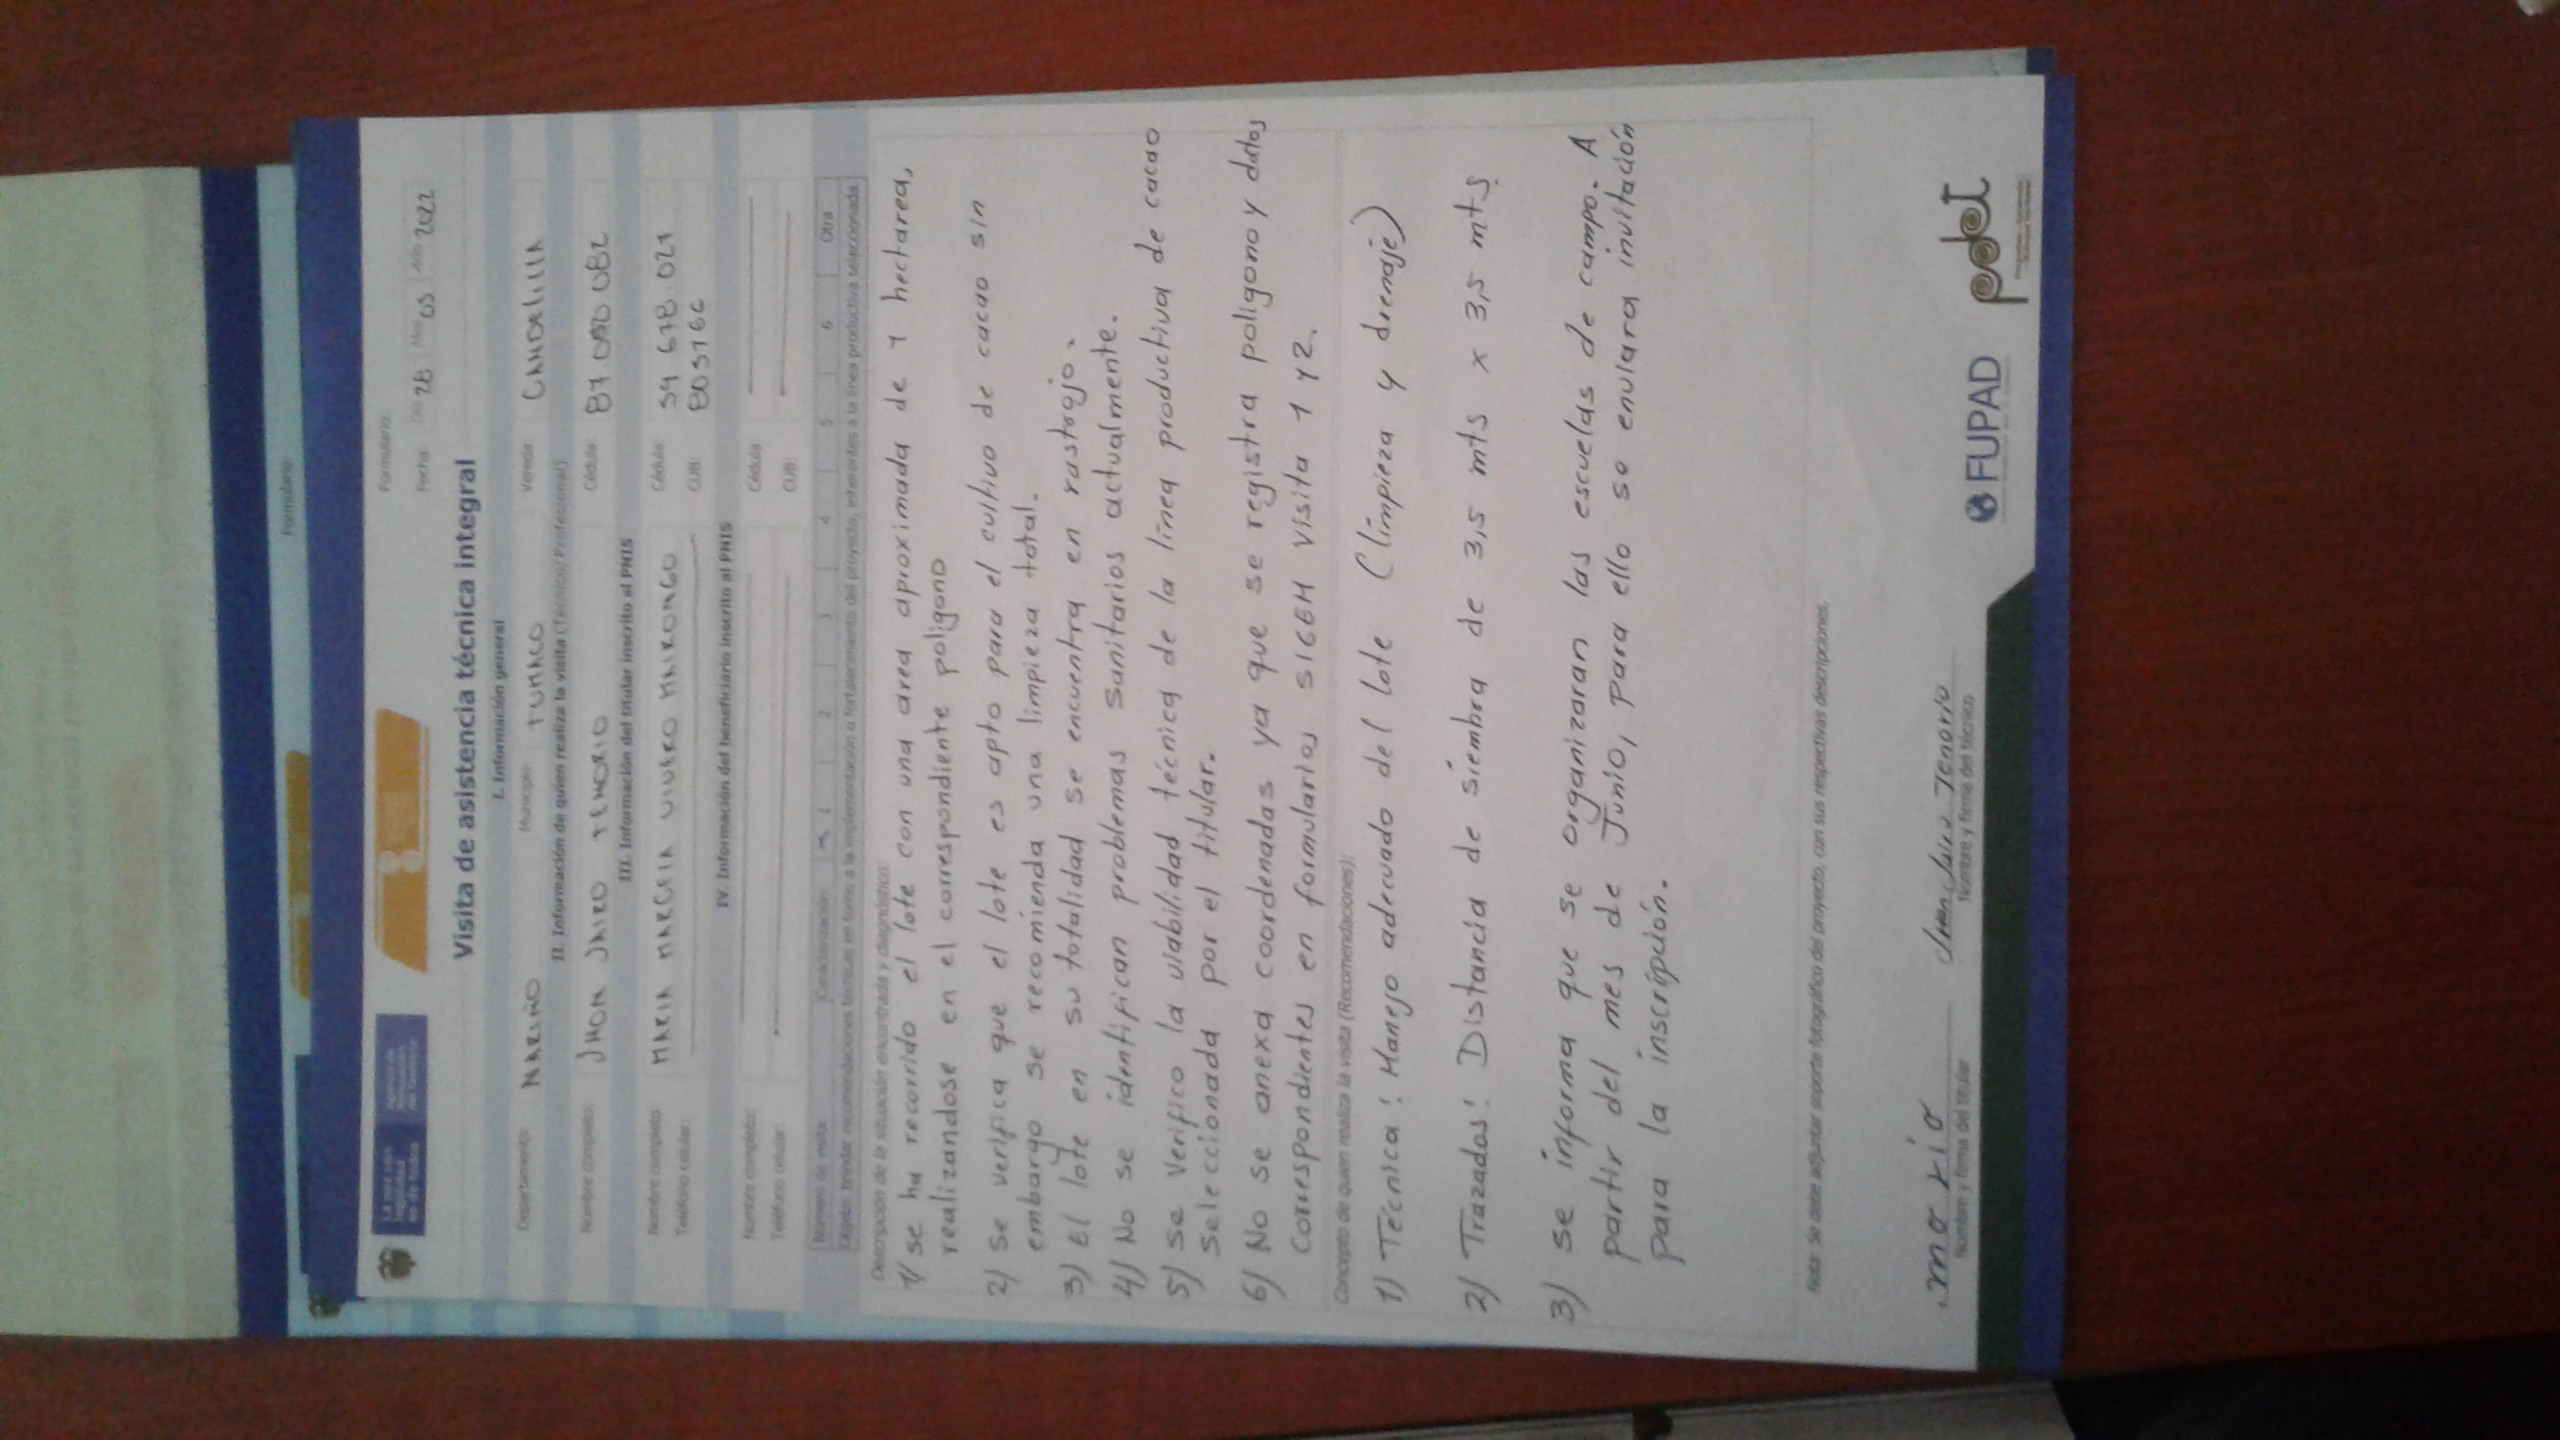 Formulario:
Formulario:
Fecha: Día 28 Mes 05 Año 2022
Visita de asistencia técnica integral
I. Información general
Departamento: NARIÑO Municipio: TUMACO Vereda: CANDELILLA
II. Información de quien realiza la visita (Técnico/Profesional)
Nombre completo: JHON JAIRO TENORIO Cédula:
III. Información del titular inscrito al PNIS
Nombre completo: MARIA MARCELA VIVERO MAIRONGO Cédula: 59 678.021
Teléfono celular: CUB: 805766
IV. Información del beneficiario inscrito al PNIS
Nombre completo: Cédula:
Teléfono celular: CUB:
Número de visita: Caracterización: X 1 2 3 4 5 6 Otra
Objeto: brindar recomendaciones técnicas en torno a la implementación o fortalecimiento del proyecto, inherentes a la línea productiva seleccionada.
Descripción de la situación encontrada y diagnóstico:
1) se ha recorrido el lote con una area aproximada de 1 hectarea,
realizandose en el correspondiente poligono
2) Se verifica que el lote es apto para el cultivo de cacao sin
embargo se recomienda una limpieza total.
3) El lote en su totalidad se encuentra en rastrojo.
4) No se identifican problemas sanitarios actualmente.
5) se Verifico la viabilidad técnica de la línea productiva de cacao
Seleccionada por el titular.
6) No se anexa coordenadas ya que se registra poligono y datos
Correspondientes en formularios SIGEM Visita 1 y 2.
Concepto de quien realiza la visita (Recomendaciones):
1) Técnica: Manejo adecuado del lote (limpieza y drenaje)
2) Trazados: Distancia de siembra de 3,5 mts x 3,5 mts.
3) Se informa que se organizaran las escuelas de campo. A
partir del mes de Junio, para ello se enviara invitación
para la inscripción.
Nota: Se debe adjuntar soporte fotográfico del proyecto, con sus respectivas descripciones.
Jhon Jairo Tenorio
Nombre y firma del titular Nombre y firma del técnico
FUPAD
pdet